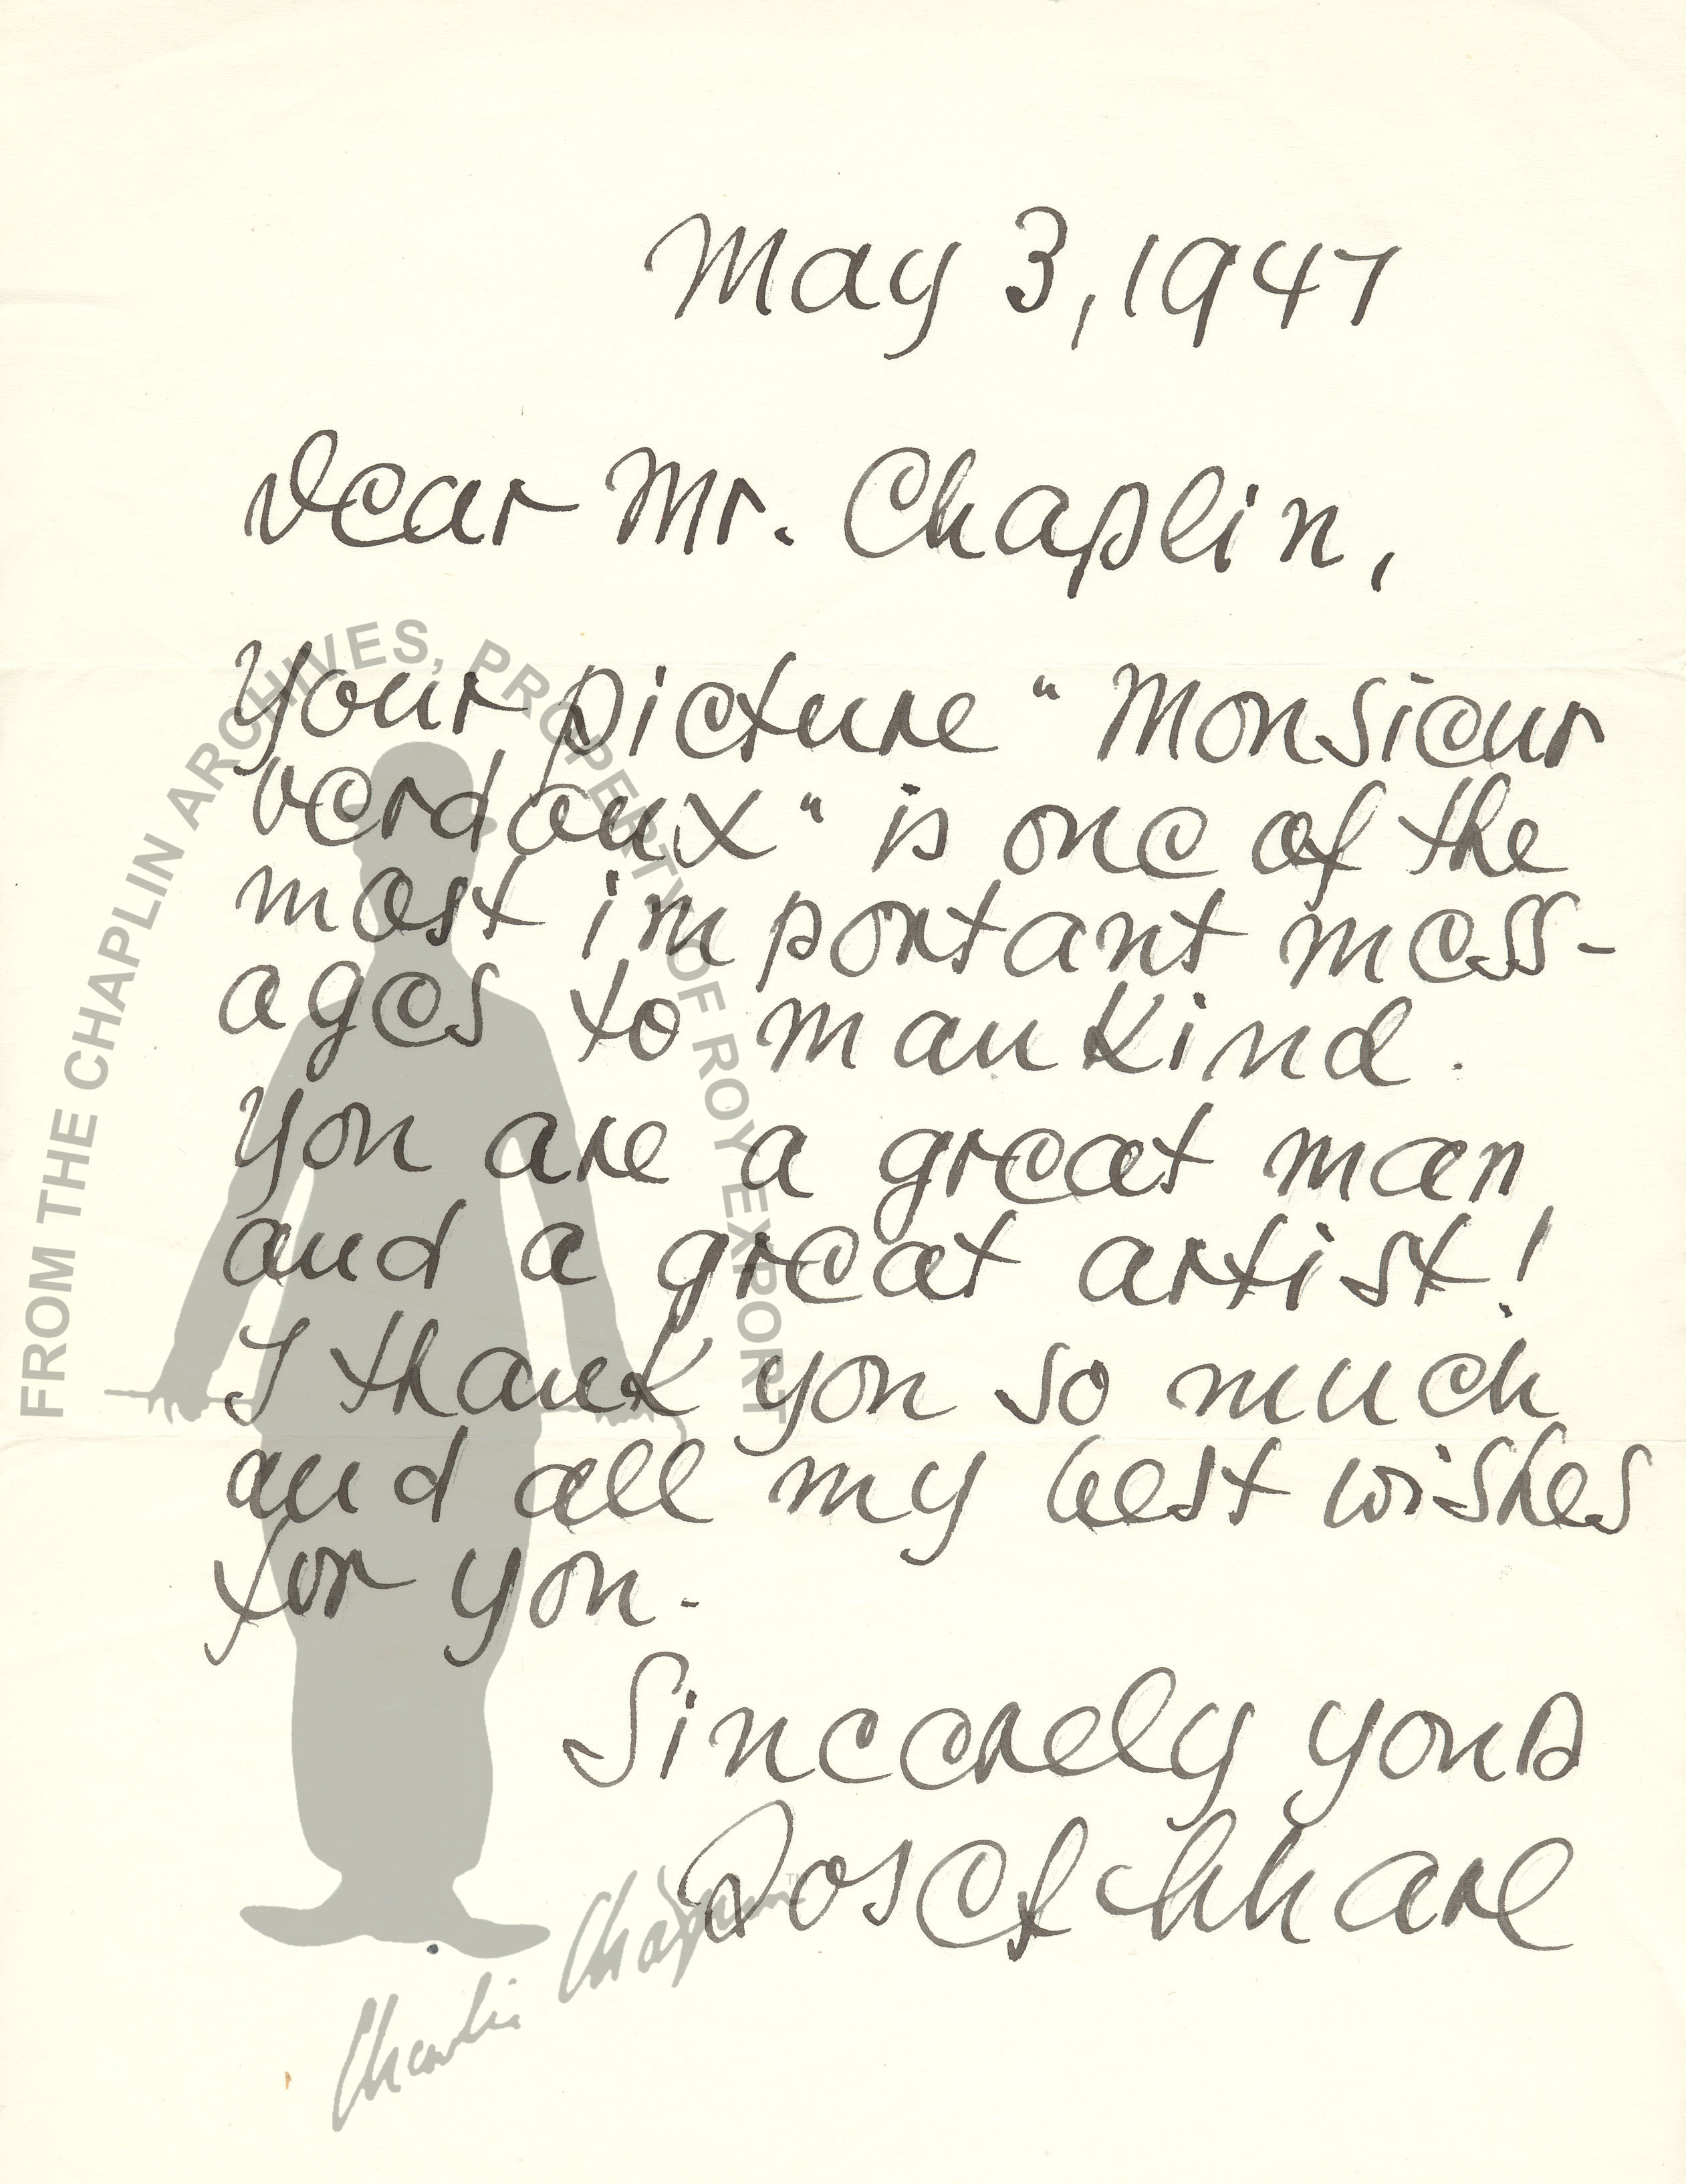 May 3, 1947
Dear Mr. Chaplin,
Your picture "Monsieur
Verdoux" is one of the
most important mess-
ages to mankind.
You are a great man
and a great artist!
I thank you so much
and all my best wishes
for you.
Sincerely yours
Josef
FROM THE CHAPLIN ARCHIVES, PROPERTY OF ROY EXPORT
Charlie Chaplin
TM